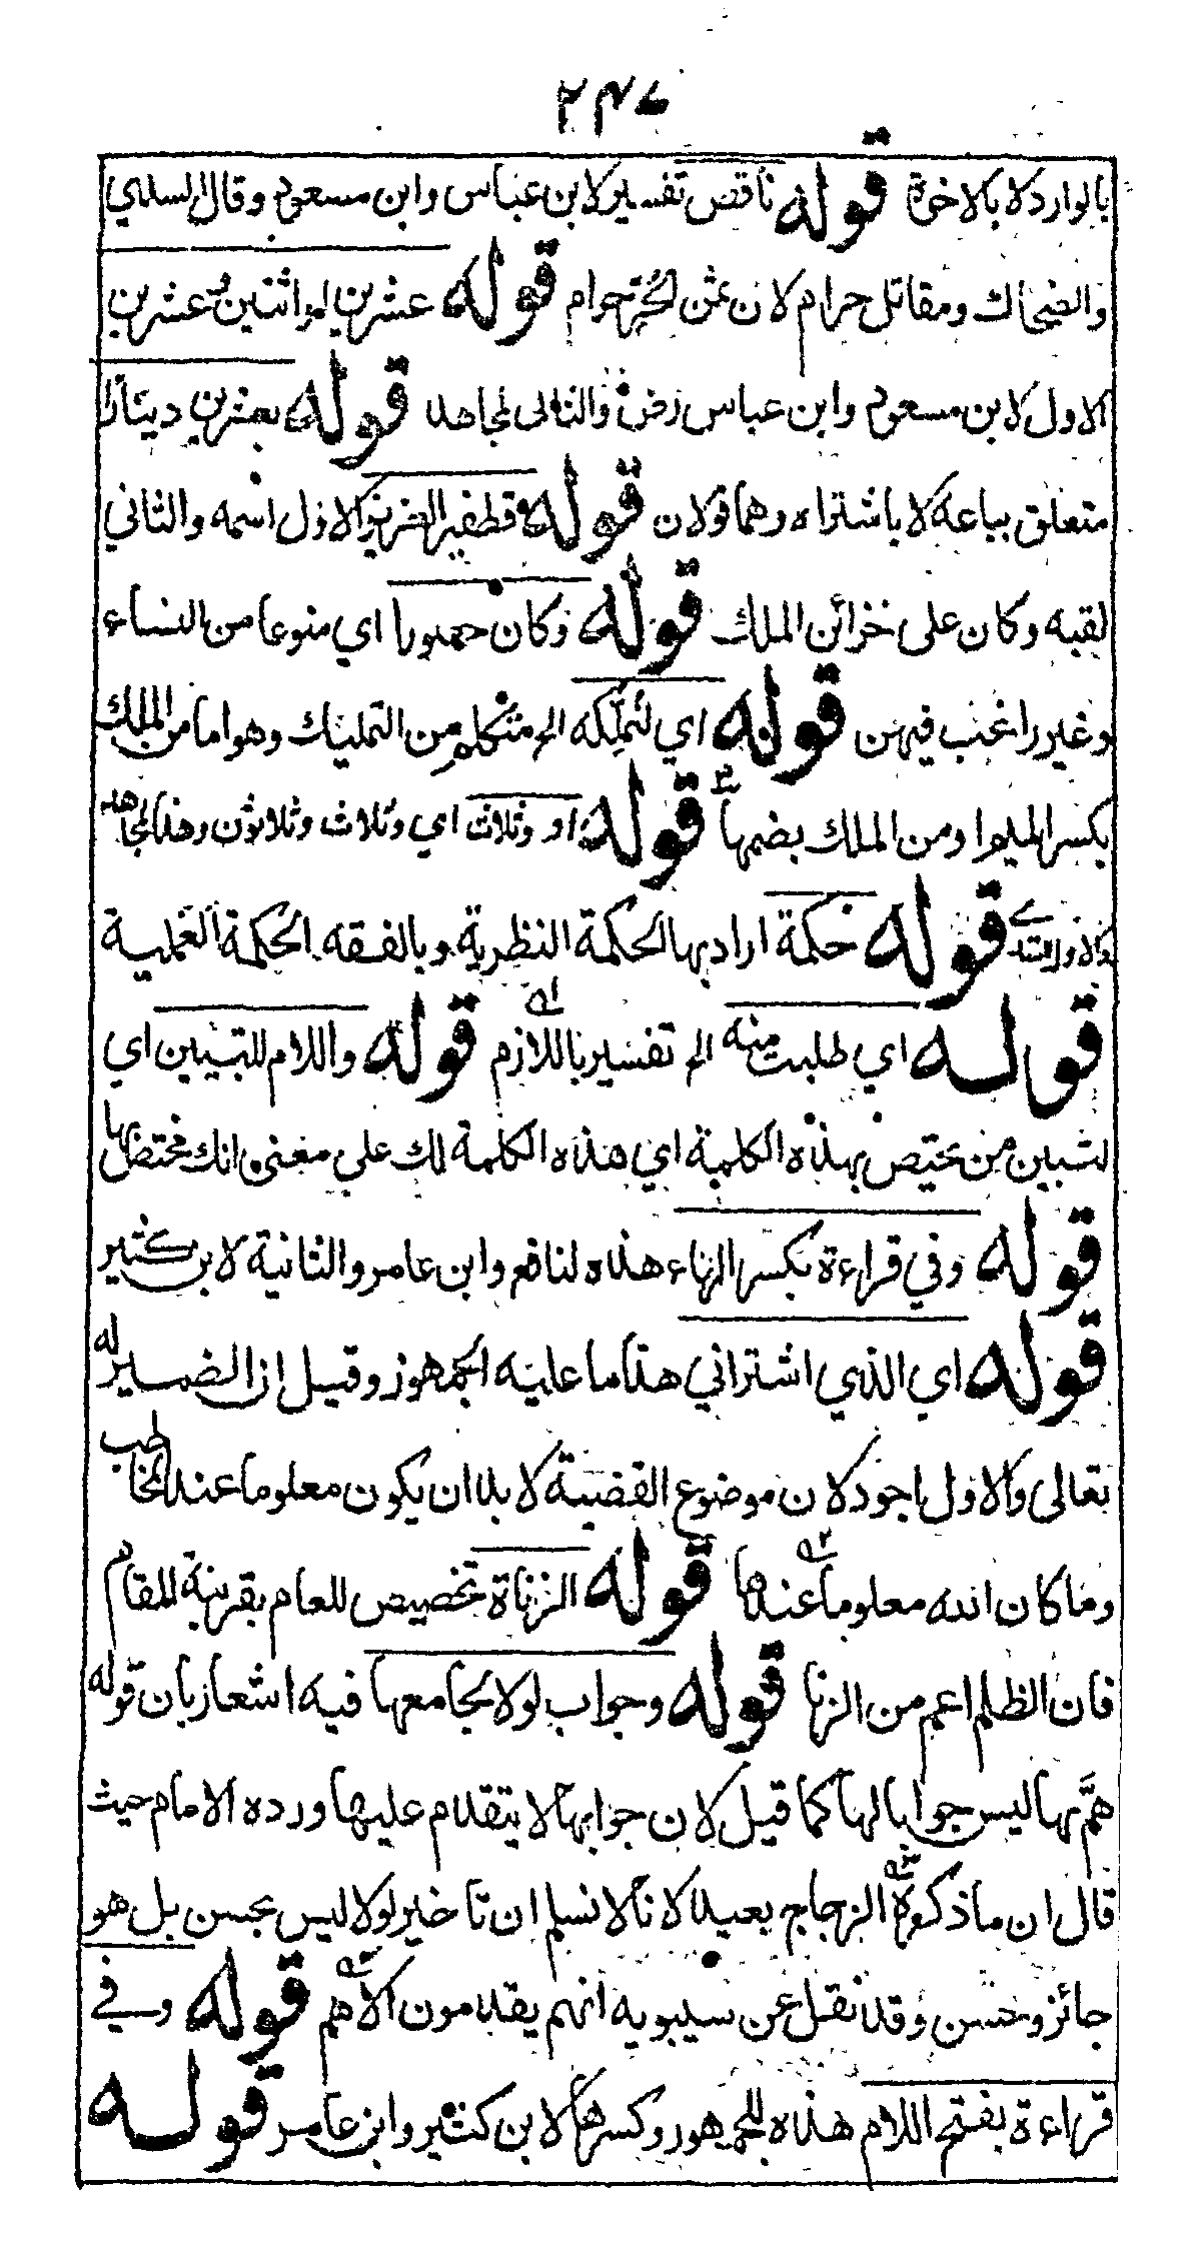 ٢٤٧
بالوارد لا بالاخوة قوله ناقص تفسير لابن عباس وابن مسعود وقال السلمي
والضحاك ومقاتل حرام لان ثمن الحر حرام قوله عشرين او اثنين وعشرين
الاول لابن مسعود وابن عباس رض والثاني لمجاهد قوله بعشرين دينارا
متعلق بباعه لا باشتراه وهما قولان قوله قطفير العزيز الاول اسمه والثاني
لقبه وكان على خزائن الملك قوله وكان حصورا اي منوعا من النساء
وغير راغب فيهن قوله اي لنملكه الم متكلم من التمليك وهو اما من الملك
بكسر الميم او من الملك بضمها قوله او وثلاث اي وثلاث وثلاثون وهذا لمجاهد
والاول قوله حكمة اراد بها الحكمة النظرية وبالفقه الحكمة العملية
قوله اي طلبت منه الم تفسير باللازم قوله واللام للتبيين اي
لتبيين من يختص بهذه الكلمة اي هذه الكلمة لك على معنى انك مختص بها
قوله وفي قراءة بكسر الهاء هذه لنافع وابن عامر والثانية لابن كثير
قوله اي الذي اشتراني هذا ما عليه الجمهور وقيل ان الضمير له
تعالى والاول اجود لان موضوع القضية لا بد ان يكون معلوما عند المخاطب
وما كان الله معلوما عندها قوله الزناة تخصيص للعام بقرينة المقام
فان الظلم اعم من الزنا قوله وجواب لولا لجامعها فيه اشعار بان قوله
همّ بها ليس جوابا لها كما قيل لان جوابها لا يتقدم عليها ورده الامام حيث
قال ان ما ذكره الزجاج بعيد لانا لا نسلم ان تاخير لولا ليس بحسن بل هو
جائز وحسن وقد نقل عن سيبويه انهم يقدمون الاهم قوله وفي
قراءة بفتح اللام هذه للجمهور وكسرها لابن كثير وابن عامر قوله